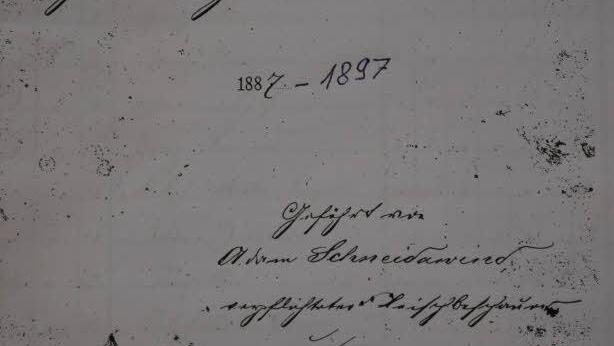 1887 – 1897
Geführt von
Adam Schneidawind,
verpflichteter Fleischbeschauer